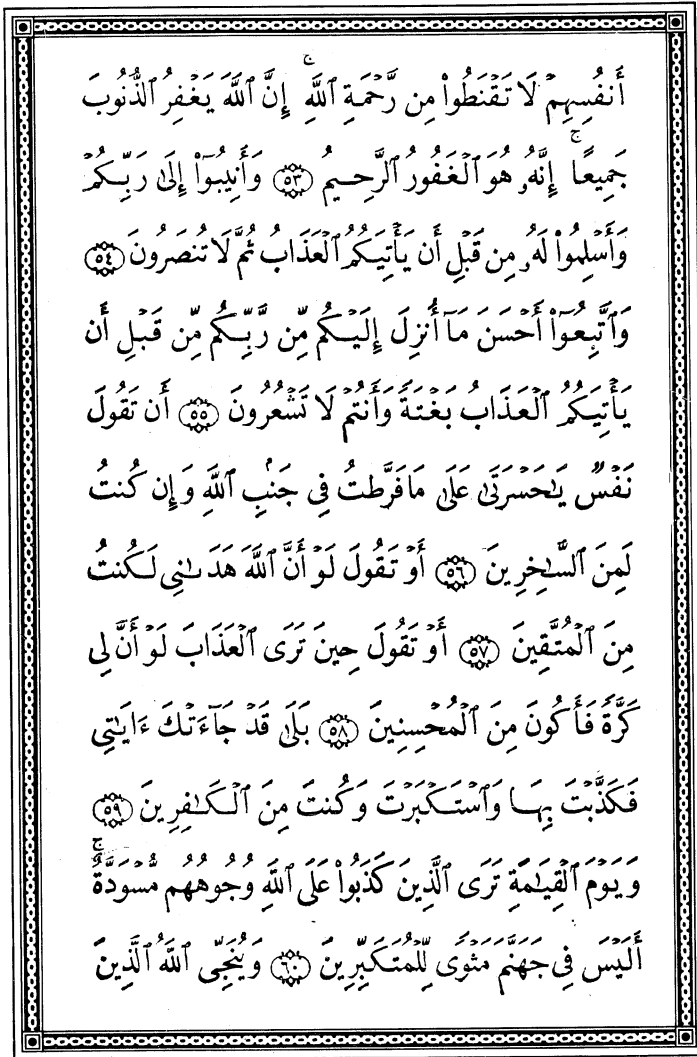 أَنفُسِهِمْ لَا تَقْنَطُوا۟ مِن رَّحْمَةِ ٱللَّهِ ۚ إِنَّ ٱللَّهَ يَغْفِرُ ٱلذُّنُوبَ
جَمِيعًا ۚ إِنَّهُۥ هُوَ ٱلْغَفُورُ ٱلرَّحِيمُ ٥٣ وَأَنِيبُوٓا۟ إِلَىٰ رَبِّكُمْ
وَأَسْلِمُوا۟ لَهُۥ مِن قَبْلِ أَن يَأْتِيَكُمُ ٱلْعَذَابُ ثُمَّ لَا تُنصَرُونَ ٥٤
وَٱتَّبِعُوٓا۟ أَحْسَنَ مَآ أُنزِلَ إِلَيْكُم مِّن رَّبِّكُم مِّن قَبْلِ أَن
يَأْتِيَكُمُ ٱلْعَذَابُ بَغْتَةً وَأَنتُمْ لَا تَشْعُرُونَ ٥٥ أَن تَقُولَ
نَفْسٌ يَٰحَسْرَتَىٰ عَلَىٰ مَا فَرَّطتُ فِى جَنۢبِ ٱللَّهِ وَإِن كُنتُ
لَمِنَ ٱلسَّٰخِرِينَ ٥٦ أَوْ تَقُولَ لَوْ أَنَّ ٱللَّهَ هَدَىٰنِى لَكُنتُ
مِنَ ٱلْمُتَّقِينَ ٥٧ أَوْ تَقُولَ حِينَ تَرَى ٱلْعَذَابَ لَوْ أَنَّ لِى
كَرَّةً فَأَكُونَ مِنَ ٱلْمُحْسِنِينَ ٥٨ بَلَىٰ قَدْ جَآءَتْكَ ءَايَٰتِى
فَكَذَّبْتَ بِهَا وَٱسْتَكْبَرْتَ وَكُنتَ مِنَ ٱلْكَٰفِرِينَ ٥٩
وَيَوْمَ ٱلْقِيَٰمَةِ تَرَى ٱلَّذِينَ كَذَبُوا۟ عَلَى ٱللَّهِ وُجُوهُهُم مُّسْوَدَّةٌ ۚ
أَلَيْسَ فِى جَهَنَّمَ مَثْوًى لِّلْمُتَكَبِّرِينَ ٦٠ وَيُنَجِّى ٱللَّهُ ٱلَّذِينَ